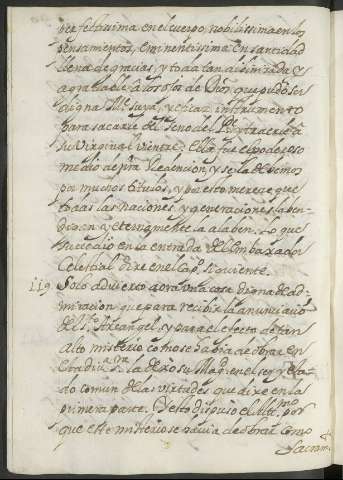 perfectissima en el cuerpo, nobilissima en los
pensamientos, eminentissima en santidad
llena de gracias, y toda tan
agradable a los ojos de Dios que pudo ser
digna Me suya, y eficaz instrumento
para sacarle del seno del Pe y traerle a
su Virginal vientre. Ella fue el poderoso
medio de nra Redencion, y se la devemos
por muchos titulos, y por esto merece que
todas las naciones, y generaciones la ben-
digan y eternamente la alaben. Lo que
sucedio en la entrada del Embaxador
Celestial dire en el Capo siguiente.
119. Solo advierto aora una cosa digna de ad-
miracion, que para recibir la anunciacion
del So Arcangel, y para el efecto de tan
alto misterio como se habia de obrar en
esta diva Sra la dexo su Magd en el ser y esta-
do comun de las virtudes que dixe en la
primera parte. Y esto dispuso el Altmo por
que este misterio se havia de obrar como
Sacram